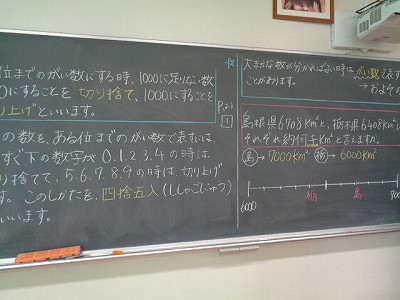 位までのがい数にする時、1000に足りない数
0にすることを 切り捨て、1000にすることを
り上げといいます。
の数を、ある位までのがい数で表すには、
すぐ下の数字が 0.1.2.3.4の時は、
り捨てて、5.6.7.8.9の時は、切り上げ
す。このしかたを、四捨五入(ししゃごにゅう)
いいます。
P.21
1
大まかな数が分かればよい時は、がい数で表す
ことがあります。
→およその
島根県6708Km²と、栃木県6408Km²は
それぞれ約何千Km²と言えますか。
島→7000Km² 栃→6000Km²
6000
栃
島